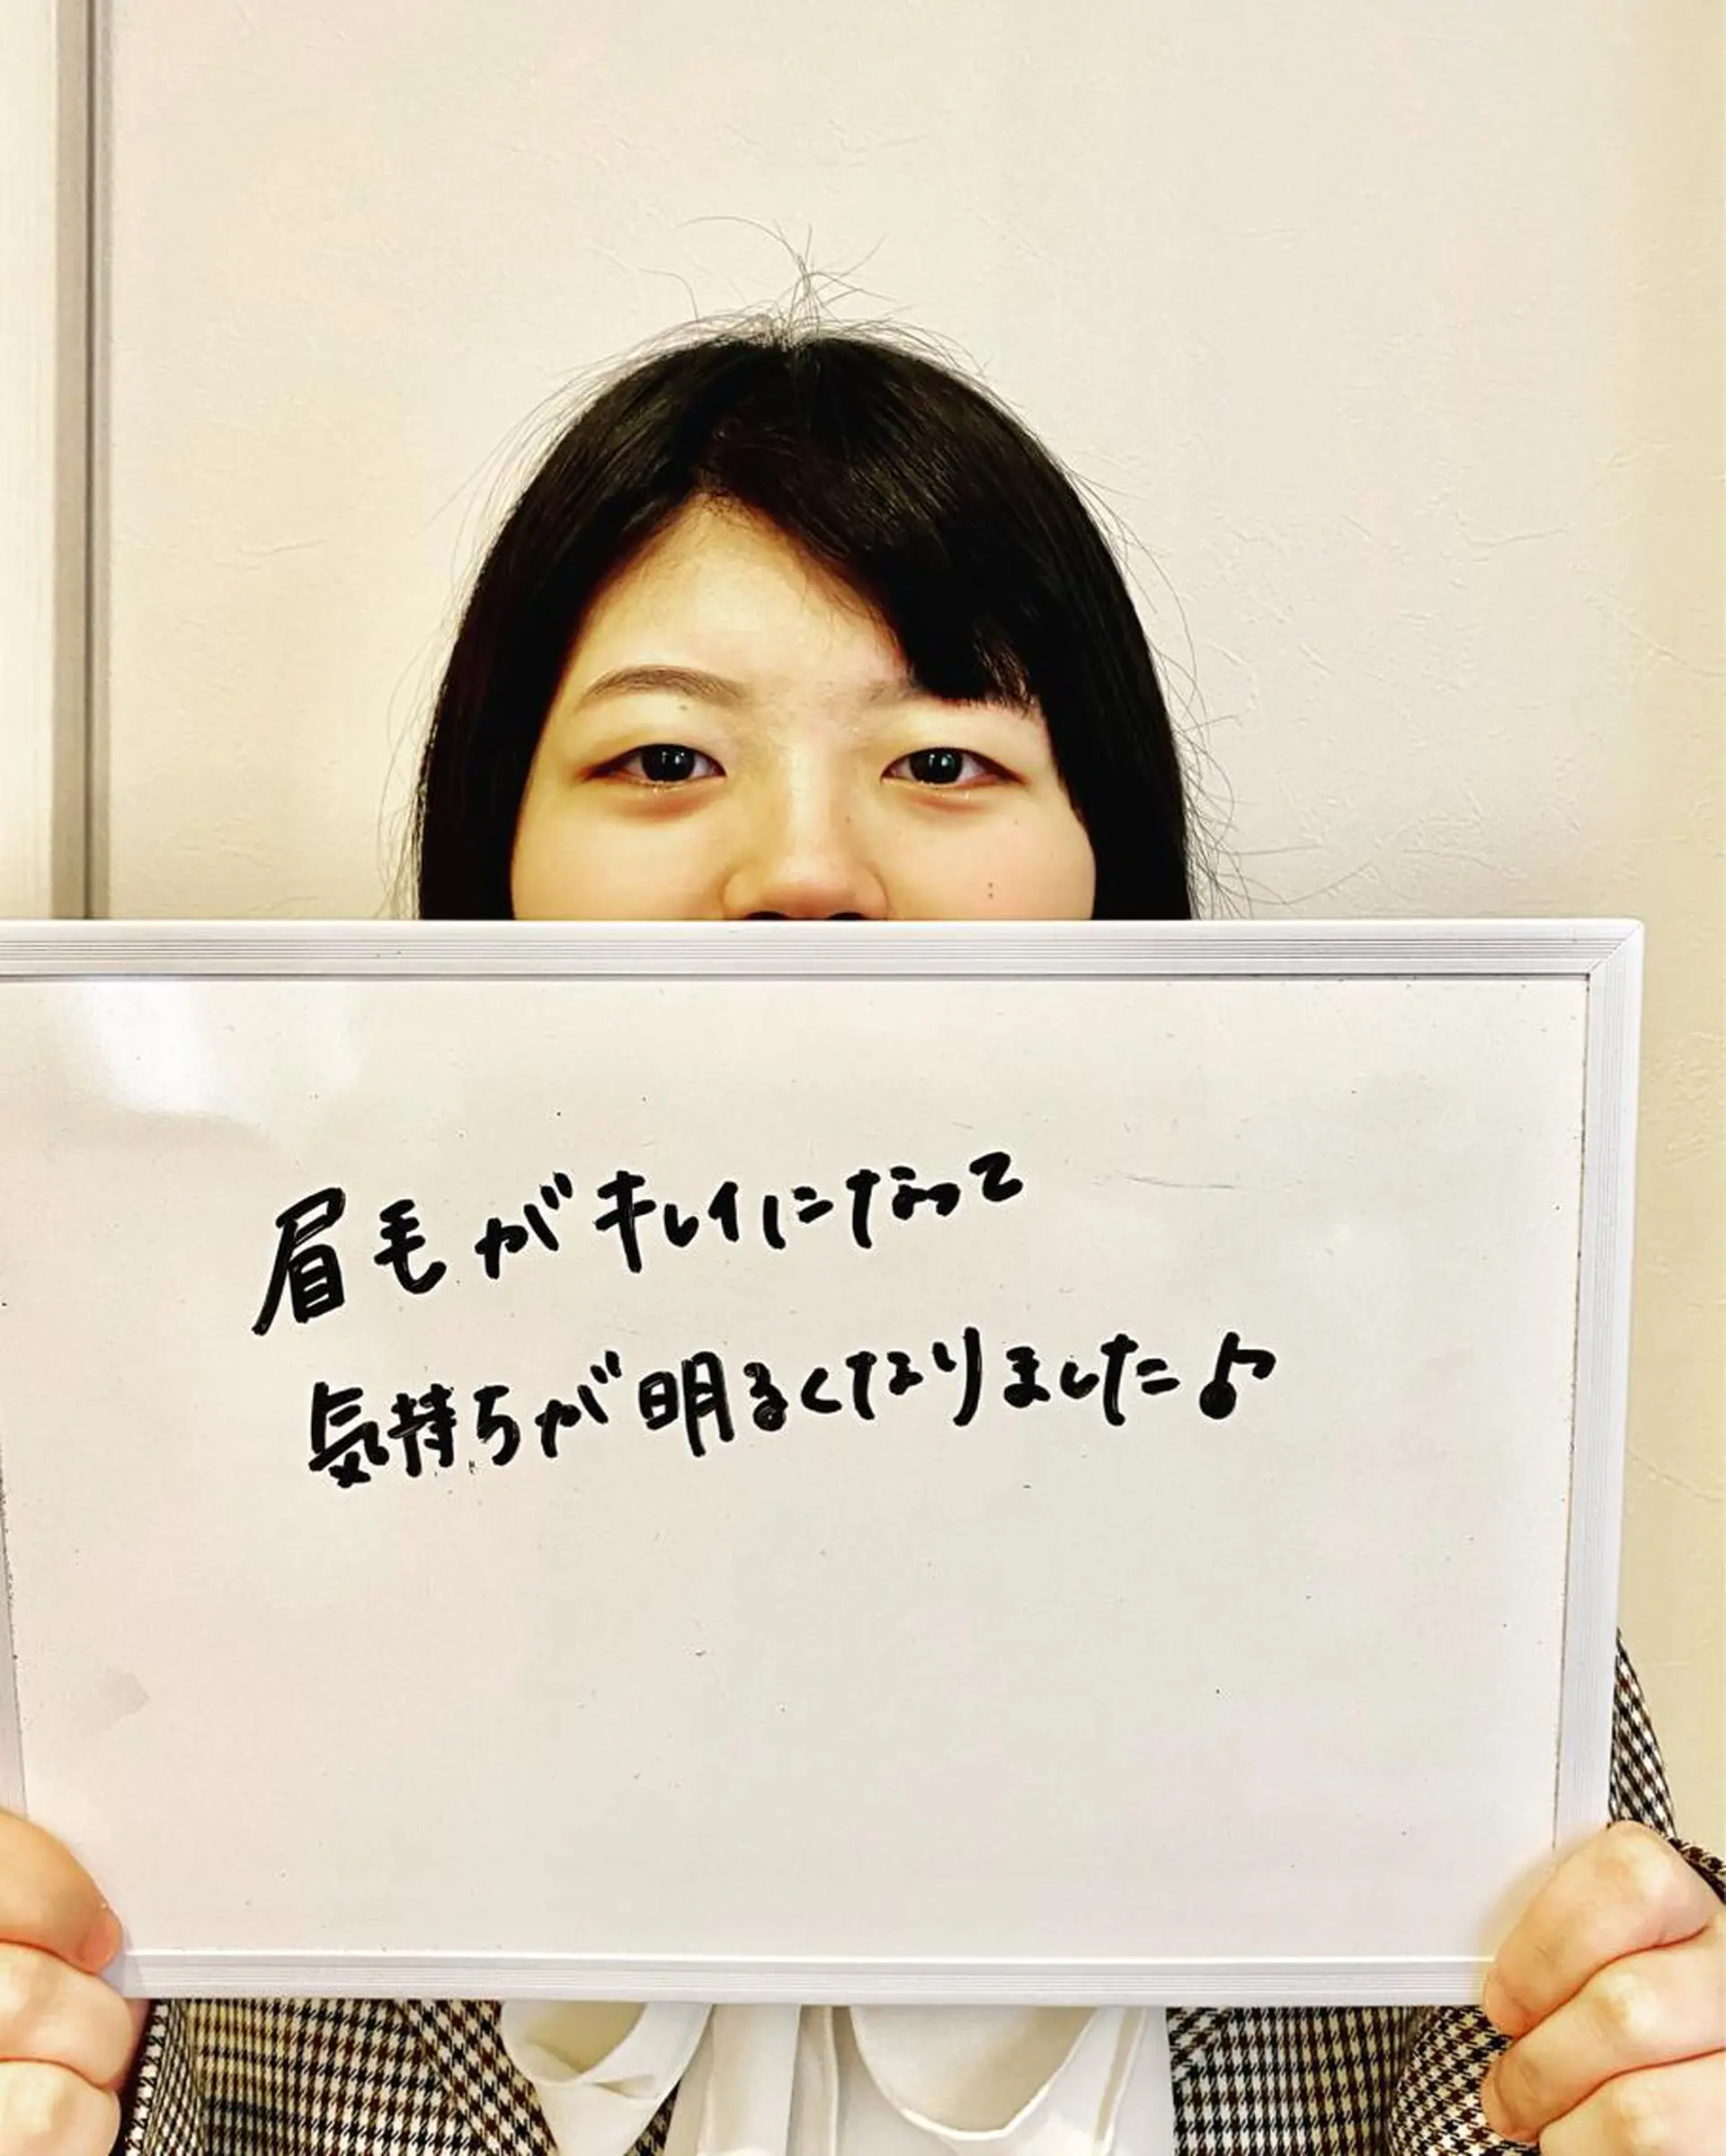 眉毛がキレイになって
気持ちが明るくなりました♪